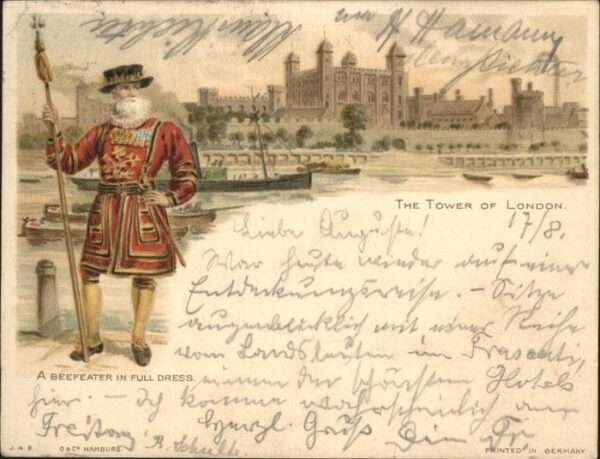 H. Hamann
THE TOWER OF LONDON.
Liebe Auguste! 17/8.
War heute wieder auf einer
Entdeckungsreise. – Sitze
augenblicklich mit einer Reihe
von Landsleuten im Frascati,
A BEEFEATER IN FULL DRESS.
einem der schönsten Hotels
hier. – Ich komme wahrscheinlich am
Freitag Herzl. Gruß Dein Fr
J.A.B. & Co. HAMBURG
PRINTED IN GERMANY